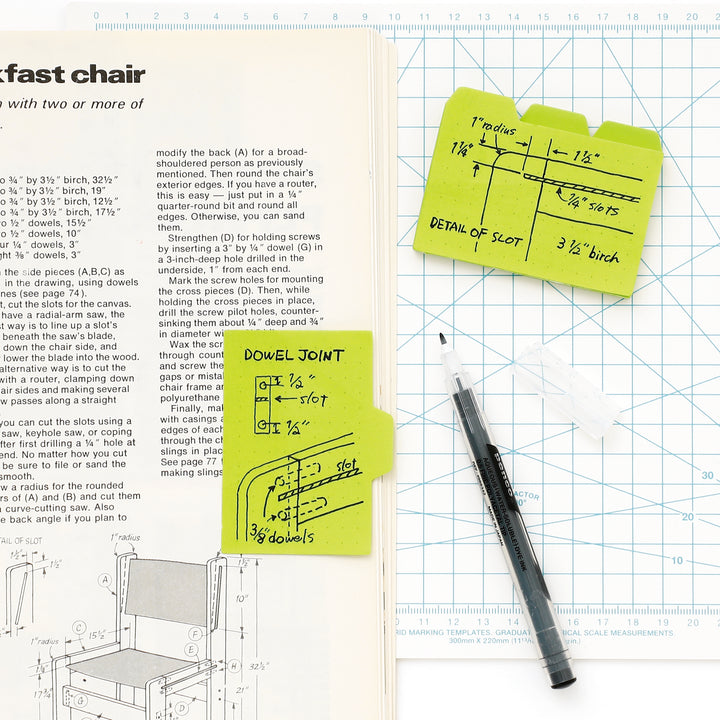 fast chair
with two or more of
¾" by 3½" birch, 32½"
¾" by 3½" birch, 19"
¾" by 3½" birch, 12½"
¾" by 3½" birch, 17½"
½" dowels, 15½"
½" dowels, 10"
¼" dowels, 3"
⅜" dowels, 3"
the side pieces (A,B,C) as
in the drawing, using dowels
(see page 74).
cut the slots for the canvas.
have a radial-arm saw, the
way is to line up a slot's
beneath the saw's blade,
down the chair side, and
lower the blade into the wood.
alternative way is to cut the
with a router, clamping down
sides and making several
passes along a straight
you can cut the slots using a
saw, keyhole saw, or coping
first drilling a ¼" hole at
end. No matter how you cut
be sure to file or sand the
smooth.
a radius for the rounded
of (A) and (B) and cut them
curve-cutting saw. Also
back angle if you plan to
modify the back (A) for a broad-
shouldered person as previously
mentioned. Then round the chair's
exterior edges. If you have a router,
this is easy — just put in a ¼"
quarter-round bit and round all
edges. Otherwise, you can sand
them.
Strengthen (D) for holding screws
by inserting a 3" by ¼" dowel (G) in
a 3-inch-deep hole drilled in the
underside, 1" from each end.
Mark the screw holes for mounting
the cross pieces (D). Then, while
holding the cross pieces in place,
drill the screw pilot holes, counter-
sinking them about ¼" deep and ¾"
in diameter
Wax the
through
and screw the
gaps or
chair frame
polyurethane
Finally,
with casings
edges of each
through the
slings in place
See page 77
making slings
OF SLOT
1½"
1½"
1" radius
A
10"
C
15½"
F
E
H
32½"
1" radius
1½"
17¾"
G
D
21"
DOWEL JOINT
½"
slot
½"
slot
⅜" dowels
1" radius
1¼"
1½"
¼" slots
DETAIL OF SLOT
3½" birch
0 1 2 3 4 5 6 7 8 9 10 11 12 13 14 15 16 17 18 19 20 21
MADE IN JAPAN
30
20
10
11 12 13 14 15 16 17 18 19 20
MARKING TEMPLATES, SCALE MEASUREMENTS.
300mm X 220mm